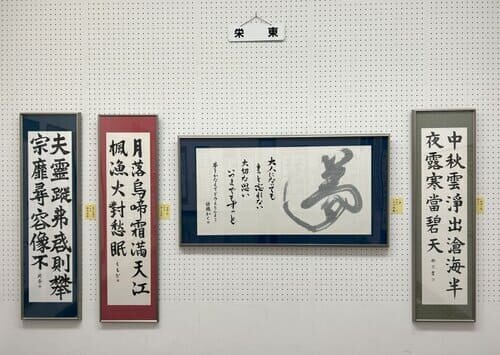 栄東
中秋雲淨出滄海半
夜露寒當碧天
夢
大人になっても
忘れない
大切な思い
いつまでもずっと
月落烏啼霜滿天江
楓漁火對愁眠
夫靈蹤弗感則攀
宗靡尋容像不